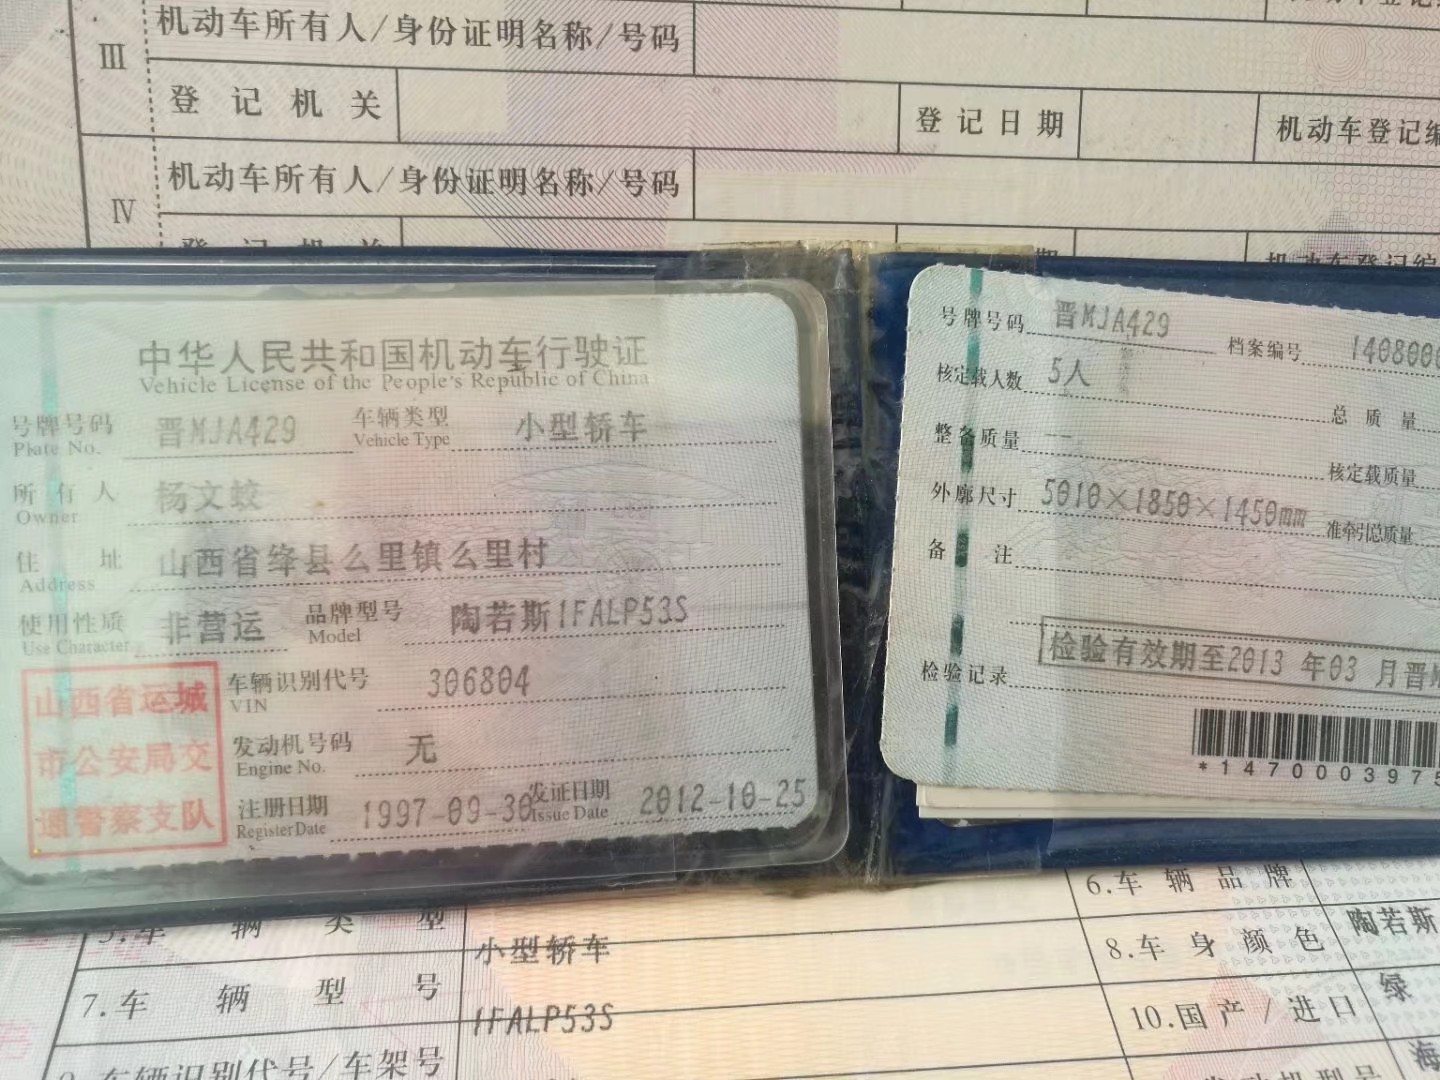 III
机动车所有人/身份证明名称/号码
登记机关
登记日期
机动车登记编
IV
机动车所有人/身份证明名称/号码
登记机关
期
机动车登记编
中华人民共和国机动车行驶证
Vehicle License of the People's Republic of China
号牌号码 晋MJA429 车辆类型 小型轿车
Plate No. Vehicle Type
所有人 杨文蛟
Owner
住址 山西省绛县么里镇么里村
Address
使用性质 非营运 品牌型号 陶若斯1FALP53S
Use Character Model
山西省运城
市公安局交
通警察支队
车辆识别代号 306804
VIN
发动机号码 无
Engine No.
注册日期 1997-09-30 发证日期 2012-10-25
Register Date Issue Date
号牌号码 晋MJA429 档案编号 1408000
核定载人数 5人 总质量
整备质量 -- 核定载质量
外廓尺寸 5010×1850×1450mm 准牵引总质量
备注
检验记录 检验有效期至2013年03月晋
*1470003975
5.车辆类型 小型轿车 6.车辆品牌 陶若斯
7.车辆型号 1FALP53S 8.车身颜色 绿
车辆识别代号/车架号 10.国产/进口
发动机型号
海